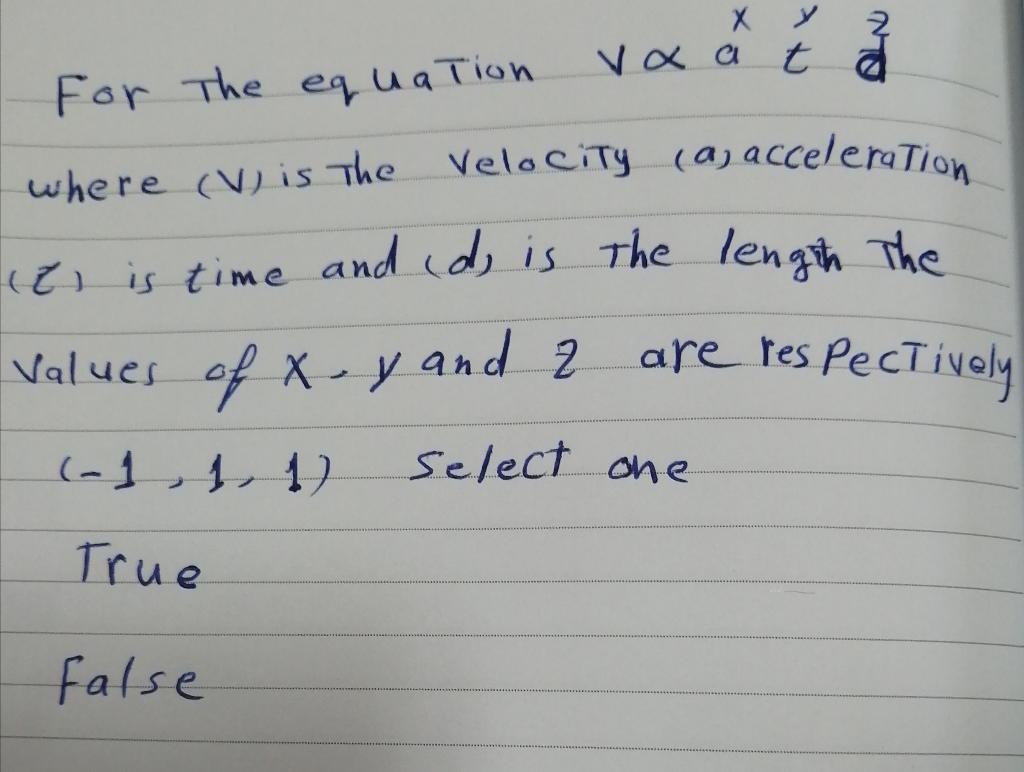 x y z
For The equation V α a t d
where (V) is The Velocity (a) acceleration
(t) is time and (d) is The length The
Values of x - y and z are respectively
(-1, 1, 1) Select one
True
False